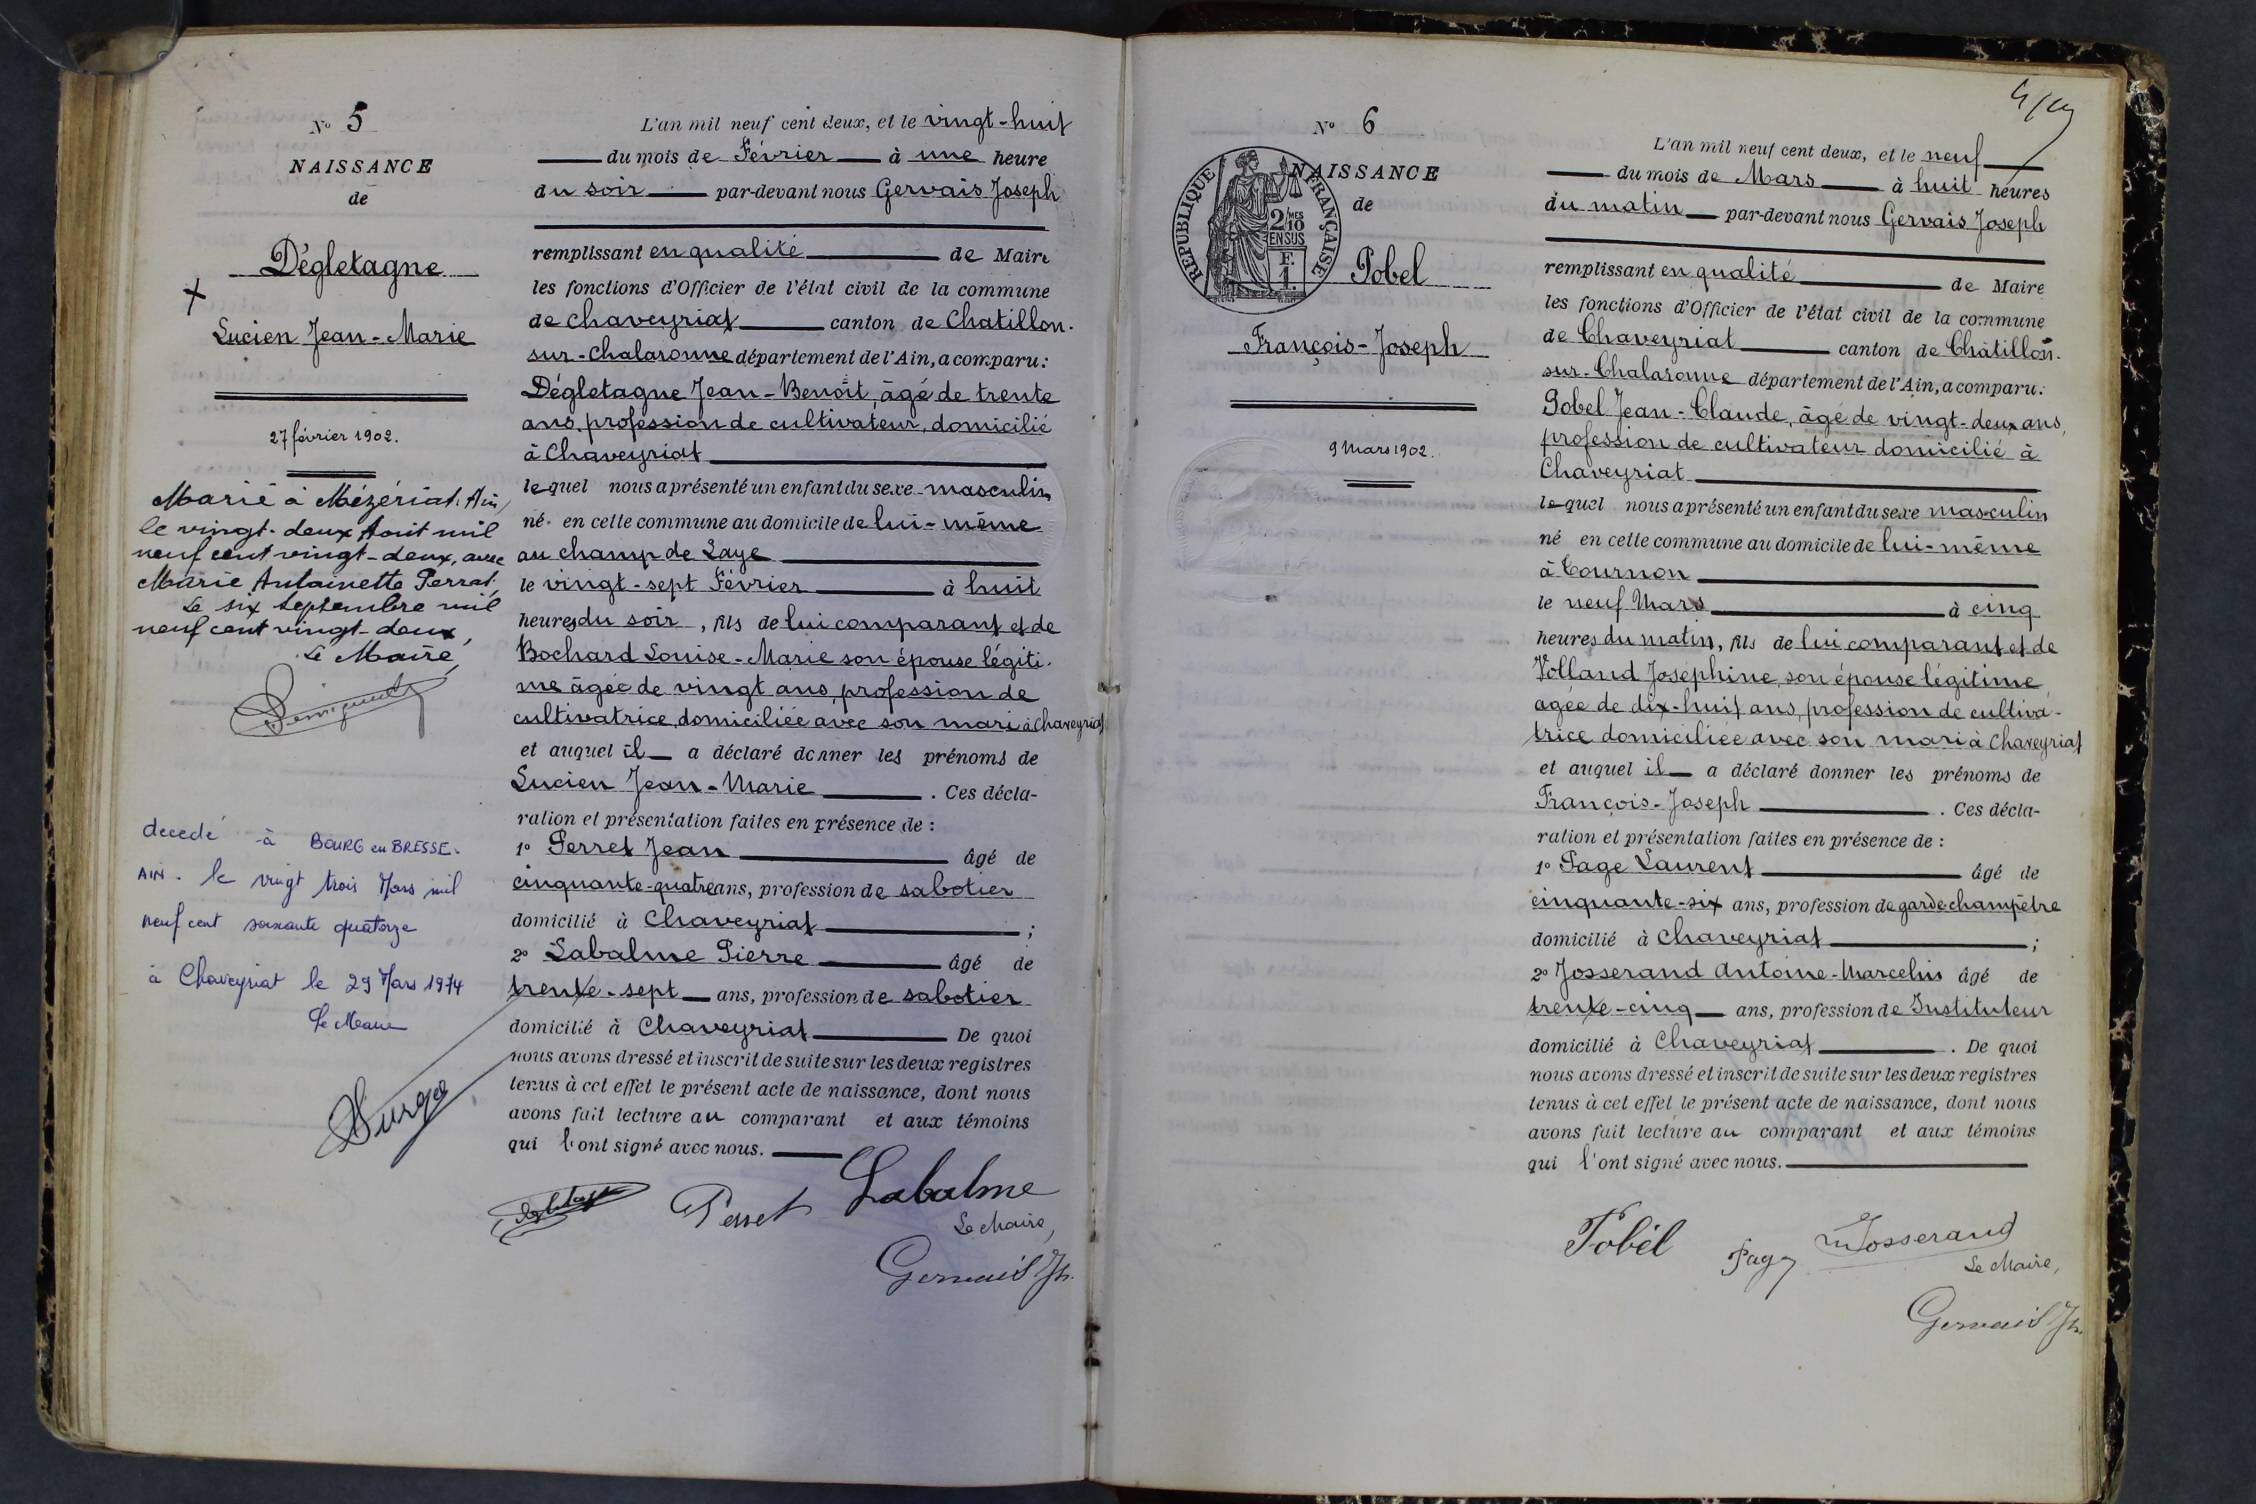 N° 5
NAISSANCE
de
Dégletagne
Lucien Jean-Marie
27 février 1902.
Marié à Mézériat, Ain,
le vingt-deux Août mil
neuf cent vingt-deux, avec
Marie Antoinette Perrat.
Le six Septembre mil
neuf cent vingt-deux,
Le Maire,
decedé à BOURG en BRESSE.
AIN. le vingt trois Mars mil
neuf cent soixante quatorze
à Chaveyriat le 29 Mars 1974
Le Maire
L'an mil neuf cent deux, et le vingt-huit
du mois de Février à une heure
du soir par-devant nous Gervais Joseph
remplissant en qualité de Maire
les fonctions d'Officier de l'état civil de la commune
de Chaveyriat canton de Chatillon-
sur-Chalaronne département de l'Ain, a comparu:
Dégletagne Jean-Benoît, âgé de trente
ans, profession de cultivateur, domicilié
à Chaveyriat
lequel nous a présenté un enfant du sexe masculin
né en cette commune au domicile de lui-même
au champ de Laye
le vingt-sept Février à huit
heures du soir, fils de lui comparant et de
Bochard Louise-Marie son épouse légiti-
me âgée de vingt ans, profession de
cultivatrice, domiciliée avec son mari à Chaveyriat
et auquel il a déclaré donner les prénoms de
Lucien Jean-Marie. Ces décla-
ration et présentation faites en présence de :
1° Perret Jean âgé de
cinquante-quatre ans, profession de sabotier
domicilié à Chaveyriat ;
2° Labalme Pierre âgé de
trente-sept ans, profession de sabotier
domicilié à Chaveyriat De quoi
nous avons dressé et inscrit de suite sur les deux registres
tenus à cet effet le présent acte de naissance, dont nous
avons fait lecture au comparant et aux témoins
qui l'ont signé avec nous.
Perret Labalme
Le Maire,
Gervais Jh.
N° 6
NAISSANCE
de
RÉPUBLIQUE FRANÇAISE
2/10 MES
EN SUS
F.
1.
Pobel
François-Joseph
9 Mars 1902.
L'an mil neuf cent deux, et le neuf
du mois de Mars à huit heures
du matin par-devant nous Gervais Joseph
remplissant en qualité de Maire
les fonctions d'Officier de l'état civil de la commune
de Chaveyriat canton de Châtillon-
sur-Chalaronne département de l'Ain, a comparu:
Pobel Jean-Claude, âgé de vingt-deux ans,
profession de cultivateur domicilié à
Chaveyriat
lequel nous a présenté un enfant du sexe masculin
né en cette commune au domicile de lui-même
à Tournon
le neuf Mars à cinq
heures du matin, fils de lui comparant et de
Volland Joséphine, son épouse légitime,
agée de dix-huit ans, profession de cultiva-
trice domiciliée avec son mari à Chaveyriat
et auquel il a déclaré donner les prénoms de
François-Joseph. Ces décla-
ration et présentation faites en présence de :
1° Page Laurent âgé de
cinquante-six ans, profession de garde champêtre
domicilié à Chaveyriat ;
2° Josserand Antoine-Marcelin âgé de
trente-cinq ans, profession de Instituteur
domicilié à Chaveyriat. De quoi
nous avons dressé et inscrit de suite sur les deux registres
tenus à cet effet, le présent acte de naissance, dont nous
avons fait lecture au comparant et aux témoins
qui l'ont signé avec nous.
Pobel Page Josserand
Le Maire,
Gervais Jh.